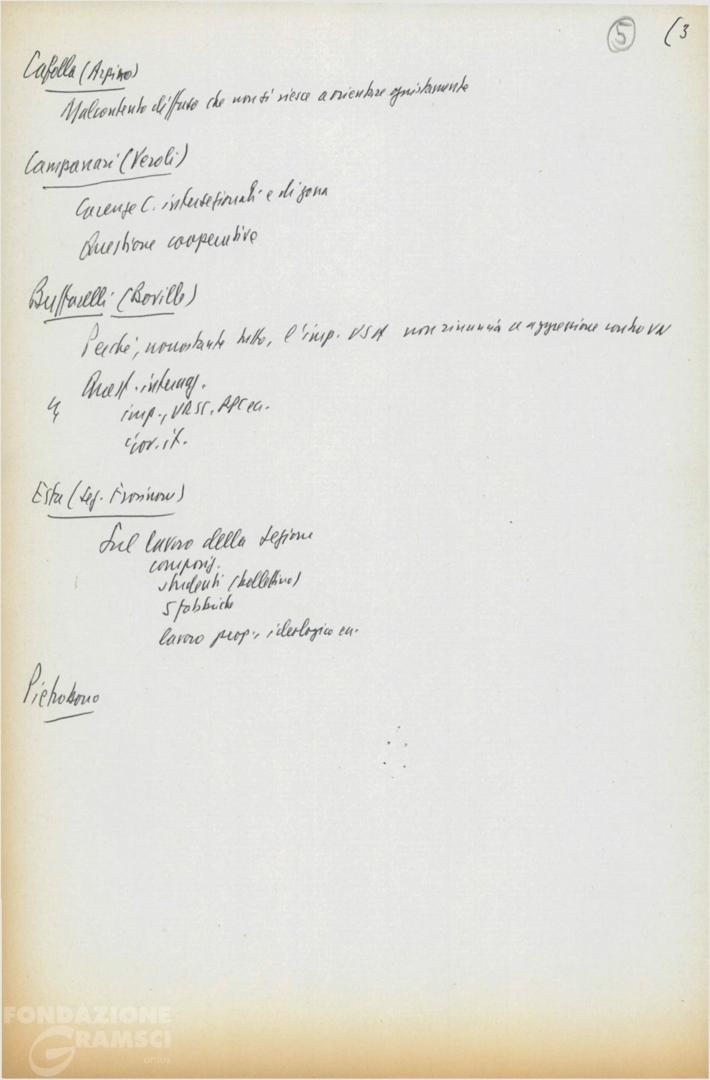 5 (3
Cafolla (Arpino)
Malcontento diffuso che non si riesce a orientare giustamente
Campanari (Veroli)
Carenze C. intersezionali e di zona
Questione cooperative
Buffarelli (Boville)
Perché, nonostante tutto, l'imp. USA non rinuncia a aggressione contro VN
Quest. internaz.
imp., URSS, RPC ecc.
Gov. it.
(Seg. Frosinone)
Sul lavoro della sezione
composiz.
studenti (bollettino)
5 fabbriche
lavoro prop., ideologico ecc.
Pietrobono
FONDAZIONE
GRAMSCI
onlus